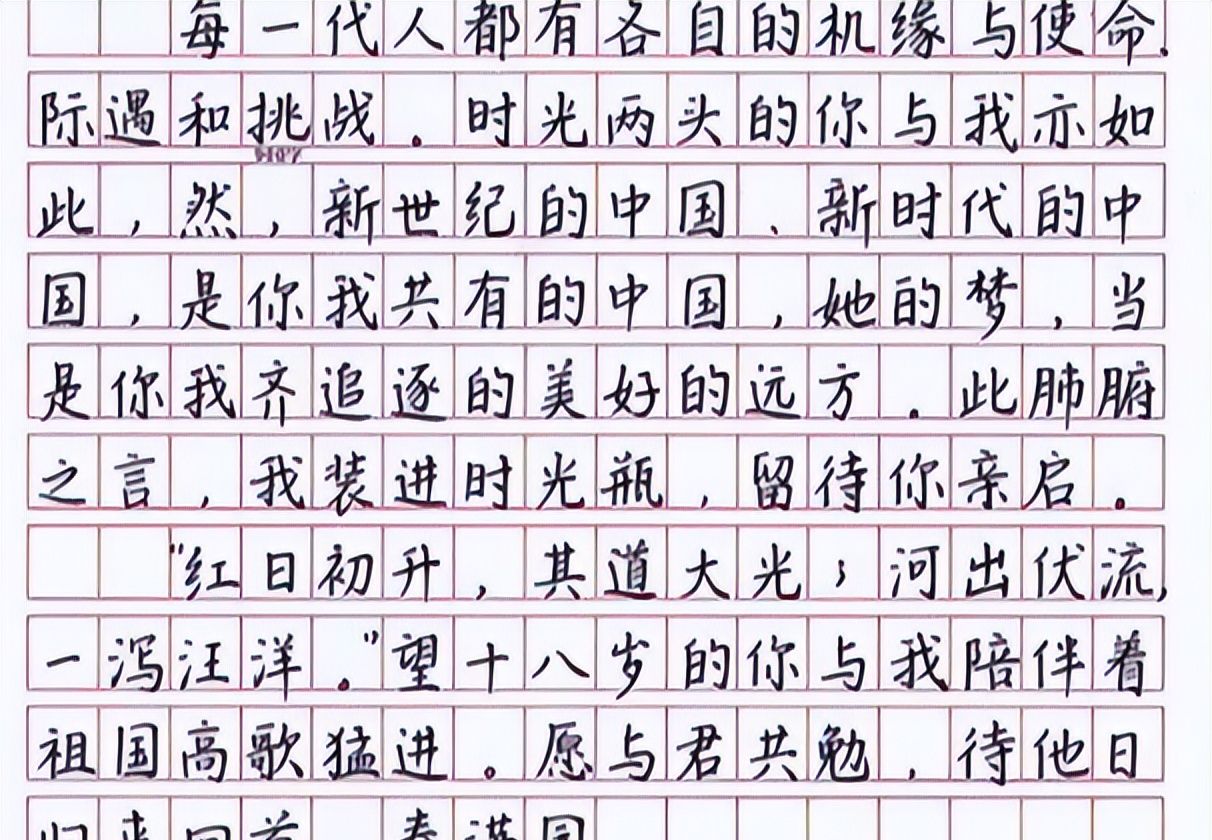 每一代人都有各自的机缘与使命、
际遇和挑战。时光两头的你与我亦如
此，然，新世纪的中国、新时代的中
国，是你我共有的中国，她的梦，当
是你我齐追逐的美好的远方。此肺腑
之言，我装进时光瓶，留待你亲启。
"红日初升，其道大光；河出伏流，
一泻汪洋。"望十八岁的你与我陪伴着
祖国高歌猛进。愿与君共勉，待他日
归来回首，春满园